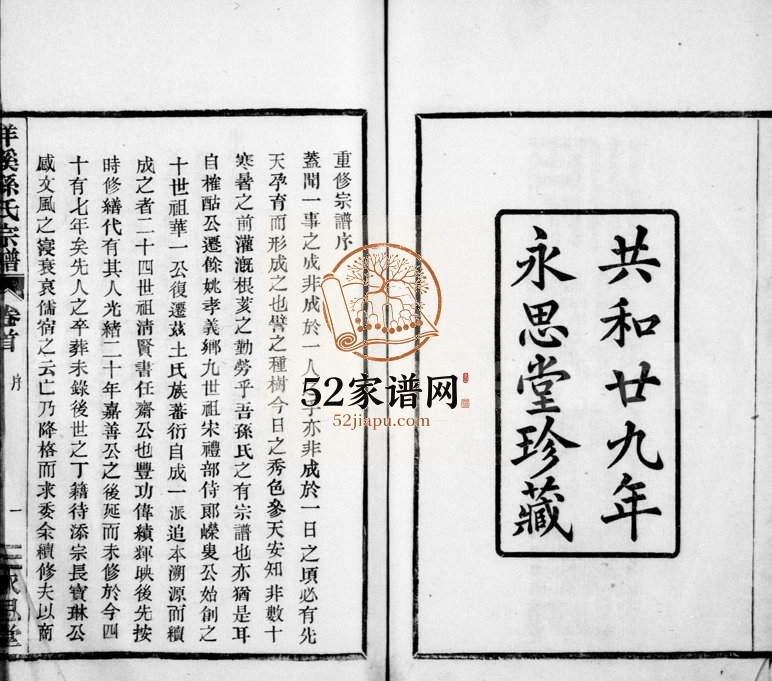 共和廿九年
永思堂珍藏
重修宗譜序
蓋聞一事之成非成於一人亦非成於一日之頃必有先
天孕育而形成之也譬之種樹今日之秀色參天安知非數十
寒暑之前灌漑根荄之勤勞乎吾孫氏之有宗譜也亦猶是耳
自榷酤公遷餘姚孝義鄕九世祖宋禮部侍郞嶸叟公始創之
十世祖華一公復遷茲土氏族蕃衍自成一派追本溯源而續
成之者二十四世祖淸賢書任齋公也豐功偉績輝映後先按
時修繕代有其人光緒二十年嘉善公之後延而未修於今四
十有七年矣先人之卒葬未錄後世之丁籍待添宗長寶琳公
感文風之寖衰哀儒宿之云亡乃降格而求委余續修夫以商
孫氏宗譜
卷首
序
一
永思堂
52家谱网
52jiapu.com